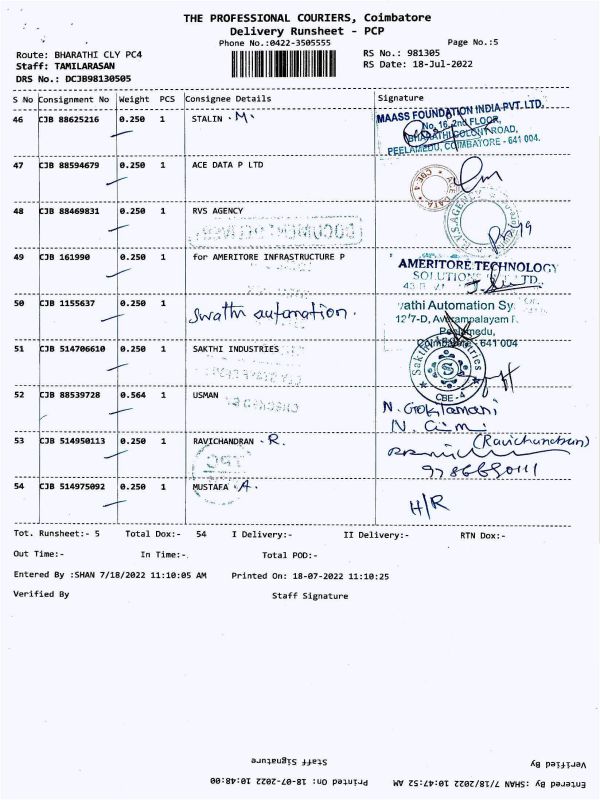 THE PROFESSIONAL COURIERS, Coimbatore
Delivery Runsheet - PCP
Phone No.:0422-3505555
Page No.:5
Route: BHARATHI CLY PC4
RS No.: 981305
Staff: TAMILARASAN
RS Date: 18-Jul-2022
DRS No.: DCJB98130505
S No Consignment No Weight PCS Consignee Details Signature
46 CJB 88625216 0.250 1 STALIN . M.
MAASS FOUNDATION INDIA PVT. LTD.
No. 16, 2nd FLOOR,
BHARATHI COLONY ROAD,
PEELAMEDU, COIMBATORE - 641 004.
47 CJB 88594679 0.250 1 ACE DATA P LTD
ACE DATA
CBE-4
48 CJB 88469831 0.250 1 RVS AGENCY
49 CJB 161990 0.250 1 for AMERITORE INFRASTRUCTURE P
AMERITORE TECHNOLOGY
SOLUTIONS
LTD.
50 CJB 1155637 0.250 1 Swathi automation.
vathi Automation Sy
12/7-D, Avarampalayam
Peelamedu,
Coimbatore - 641 004
51 CJB 514706610 0.250 1 SAKTHI INDUSTRIES
Sakthi Industries
CBE - 4
52 CJB 88539728 0.564 1 USMAN
53 CJB 514950113 0.250 1 RAVICHANDRAN . R.
(Ravichandran)
54 CJB 514975092 0.250 1 MUSTAFA . A.
H/R
Tot. Runsheet:- 5 Total Dox:- 54 I Delivery:- II Delivery:- RTN Dox:-
Out Time:- In Time:-. Total POD:-
Entered By :SHAN 7/18/2022 11:10:05 AM Printed On: 18-07-2022 11:10:25
Verified By Staff Signature
Verified By Staff Signature
Entered By :SHAN 7/18/2022 10:47:52 AM Printed On: 18-07-2022 10:48:00